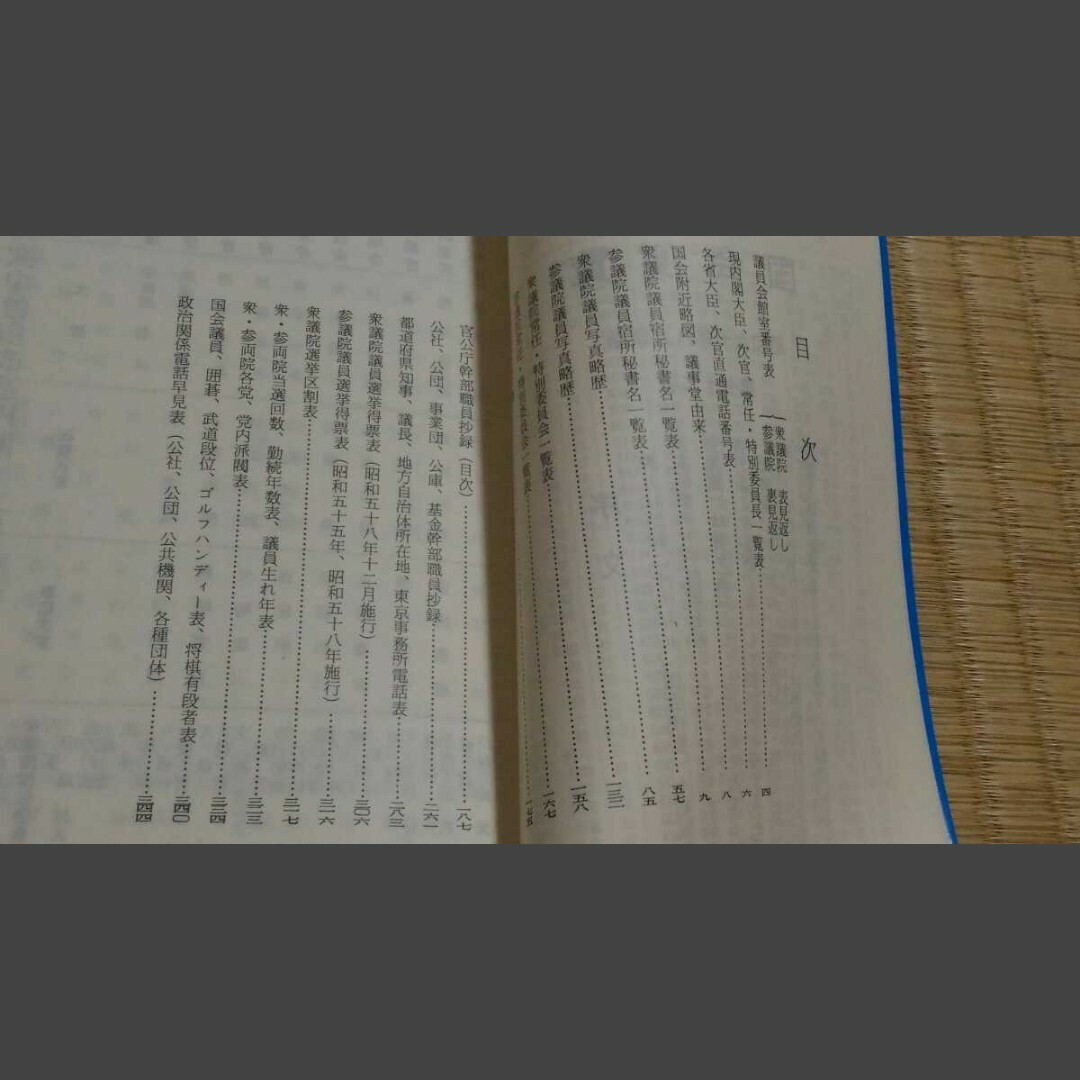 目次
議員会館室番号表 衆議院 表見返し
参議院 裏見返し
現内閣大臣、次官、常任・特別委員長一覧表…………四
各省大臣、次官直通電話番号表…………六
国会附近略図、議事堂由来…………八
衆議院議員宿所秘書名一覧表…………九
参議院議員宿所秘書名一覧表…………五七
衆議院議員写真略歴…………八五
参議院議員写真略歴…………一三二
衆議院常任・特別委員会一覧表…………一五八
一覧表…………一六七
官公庁幹部職員抄録(目次)…………一八七
公社、公団、事業団、公庫、基金幹部職員抄録…………二六一
都道府県知事、議長、地方自治体所在地、東京事務所電話表…………二八三
衆議院議員選挙得票表(昭和五十八年十二月施行)…………三〇六
参議院議員選挙得票表(昭和五十五年、昭和五十八年施行)…………三一六
衆議院選挙区割表…………三一七
衆・参両院当選回数、勤続年数表、議員生れ年表…………三二三
衆・参両院各党、党内派閥表…………三三四
国会議員、囲碁、武道段位、ゴルフハンディー表、将棋有段者表…………三四〇
政治関係電話早見表(公社、公団、公共機関、各種団体)…………三四四